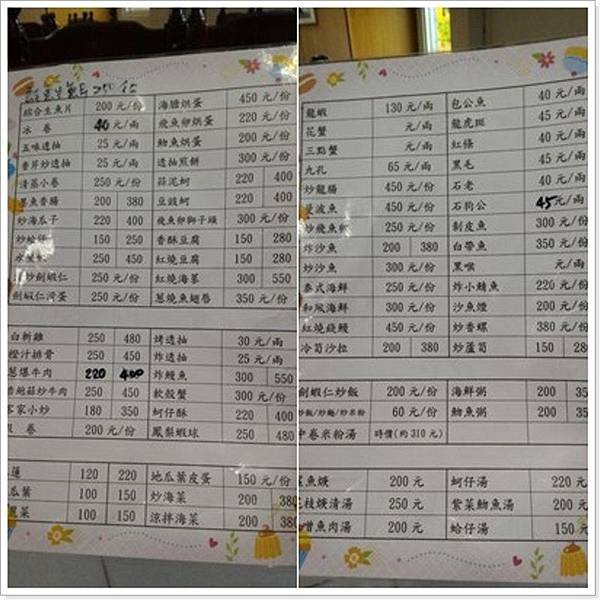 綜合生魚片 200元/份 海膽烘蛋 450元/份
冰卷 40元/兩 飛魚卵烘蛋 220元/份
五味透抽 25元/兩 魩魚烘蛋 200元/份
香芹炒透抽 25元/兩 透抽煎餅 300元/份
清蒸小卷 250元/份 蒜泥蚵 220 400
墨魚香腸 200 380 豆豉蚵 220 400
炒海瓜子 220 400 飛魚卵獅子頭 300元/份
炒蛤仔 150 250 香酥豆腐 150 280
250 450 紅燒豆腐 150 280
炒劍蝦仁 250元/份 紅燒海蔘 300 550
劍蝦仁滑蛋 250元/份 蔥燒魚翅唇 350元/份
白斬雞 250 480 烤透抽 30元/兩
橙汁排骨 250 450 炸透抽 25元/兩
蔥爆牛肉 220 400 炸鰻魚 300 550
杏鮑菇炒牛肉 250 450 軟殼蟹 300元/份
客家小炒 180 350 蚵仔酥 220 400
卷 200元/份 鳳梨蝦球 250 480
蓮 120 220 地瓜葉皮蛋 150元/份
瓜葉 100 150 炒海菜 200 380
100 150 涼拌海菜 200 380
龍蝦 130元/兩 包公魚 40元/兩
花蟹 元/兩 龍虎斑 45元/兩
三點蟹 元/兩 紅條 40元/兩
九孔 65元/兩 黑毛 45元/兩
炒龍腸 450元/份 石老 40元/兩
曼波魚 450元/份 石狗公 45元/兩
炒飛魚卵 250元/份 剝皮魚 300元/份
炸沙魚 200 380 白帶魚 350元/份
炒沙魚 300元/份 黑喉 元/兩
泰式海鮮 250元/份 炸小鯖魚 220元/份
和風海鮮 300元/份 沙魚煙 200元/份
紅燒錢鰻 450元/份 炒香螺 380元/份
冷筍沙拉 200 380 炒蘆筍 150 280
劍蝦仁炒飯 200元/份 海鮮粥 200 35
炒飯/炒麵/炒米粉 60元/份 魩魚粥 200 35
中卷米粉湯 時價(約310元)
魚焿 200元 蚵仔湯 220元
花枝焿清湯 250元 紫菜魩魚湯 200元
味噌魚肉湯 200元 蛤仔湯 150元